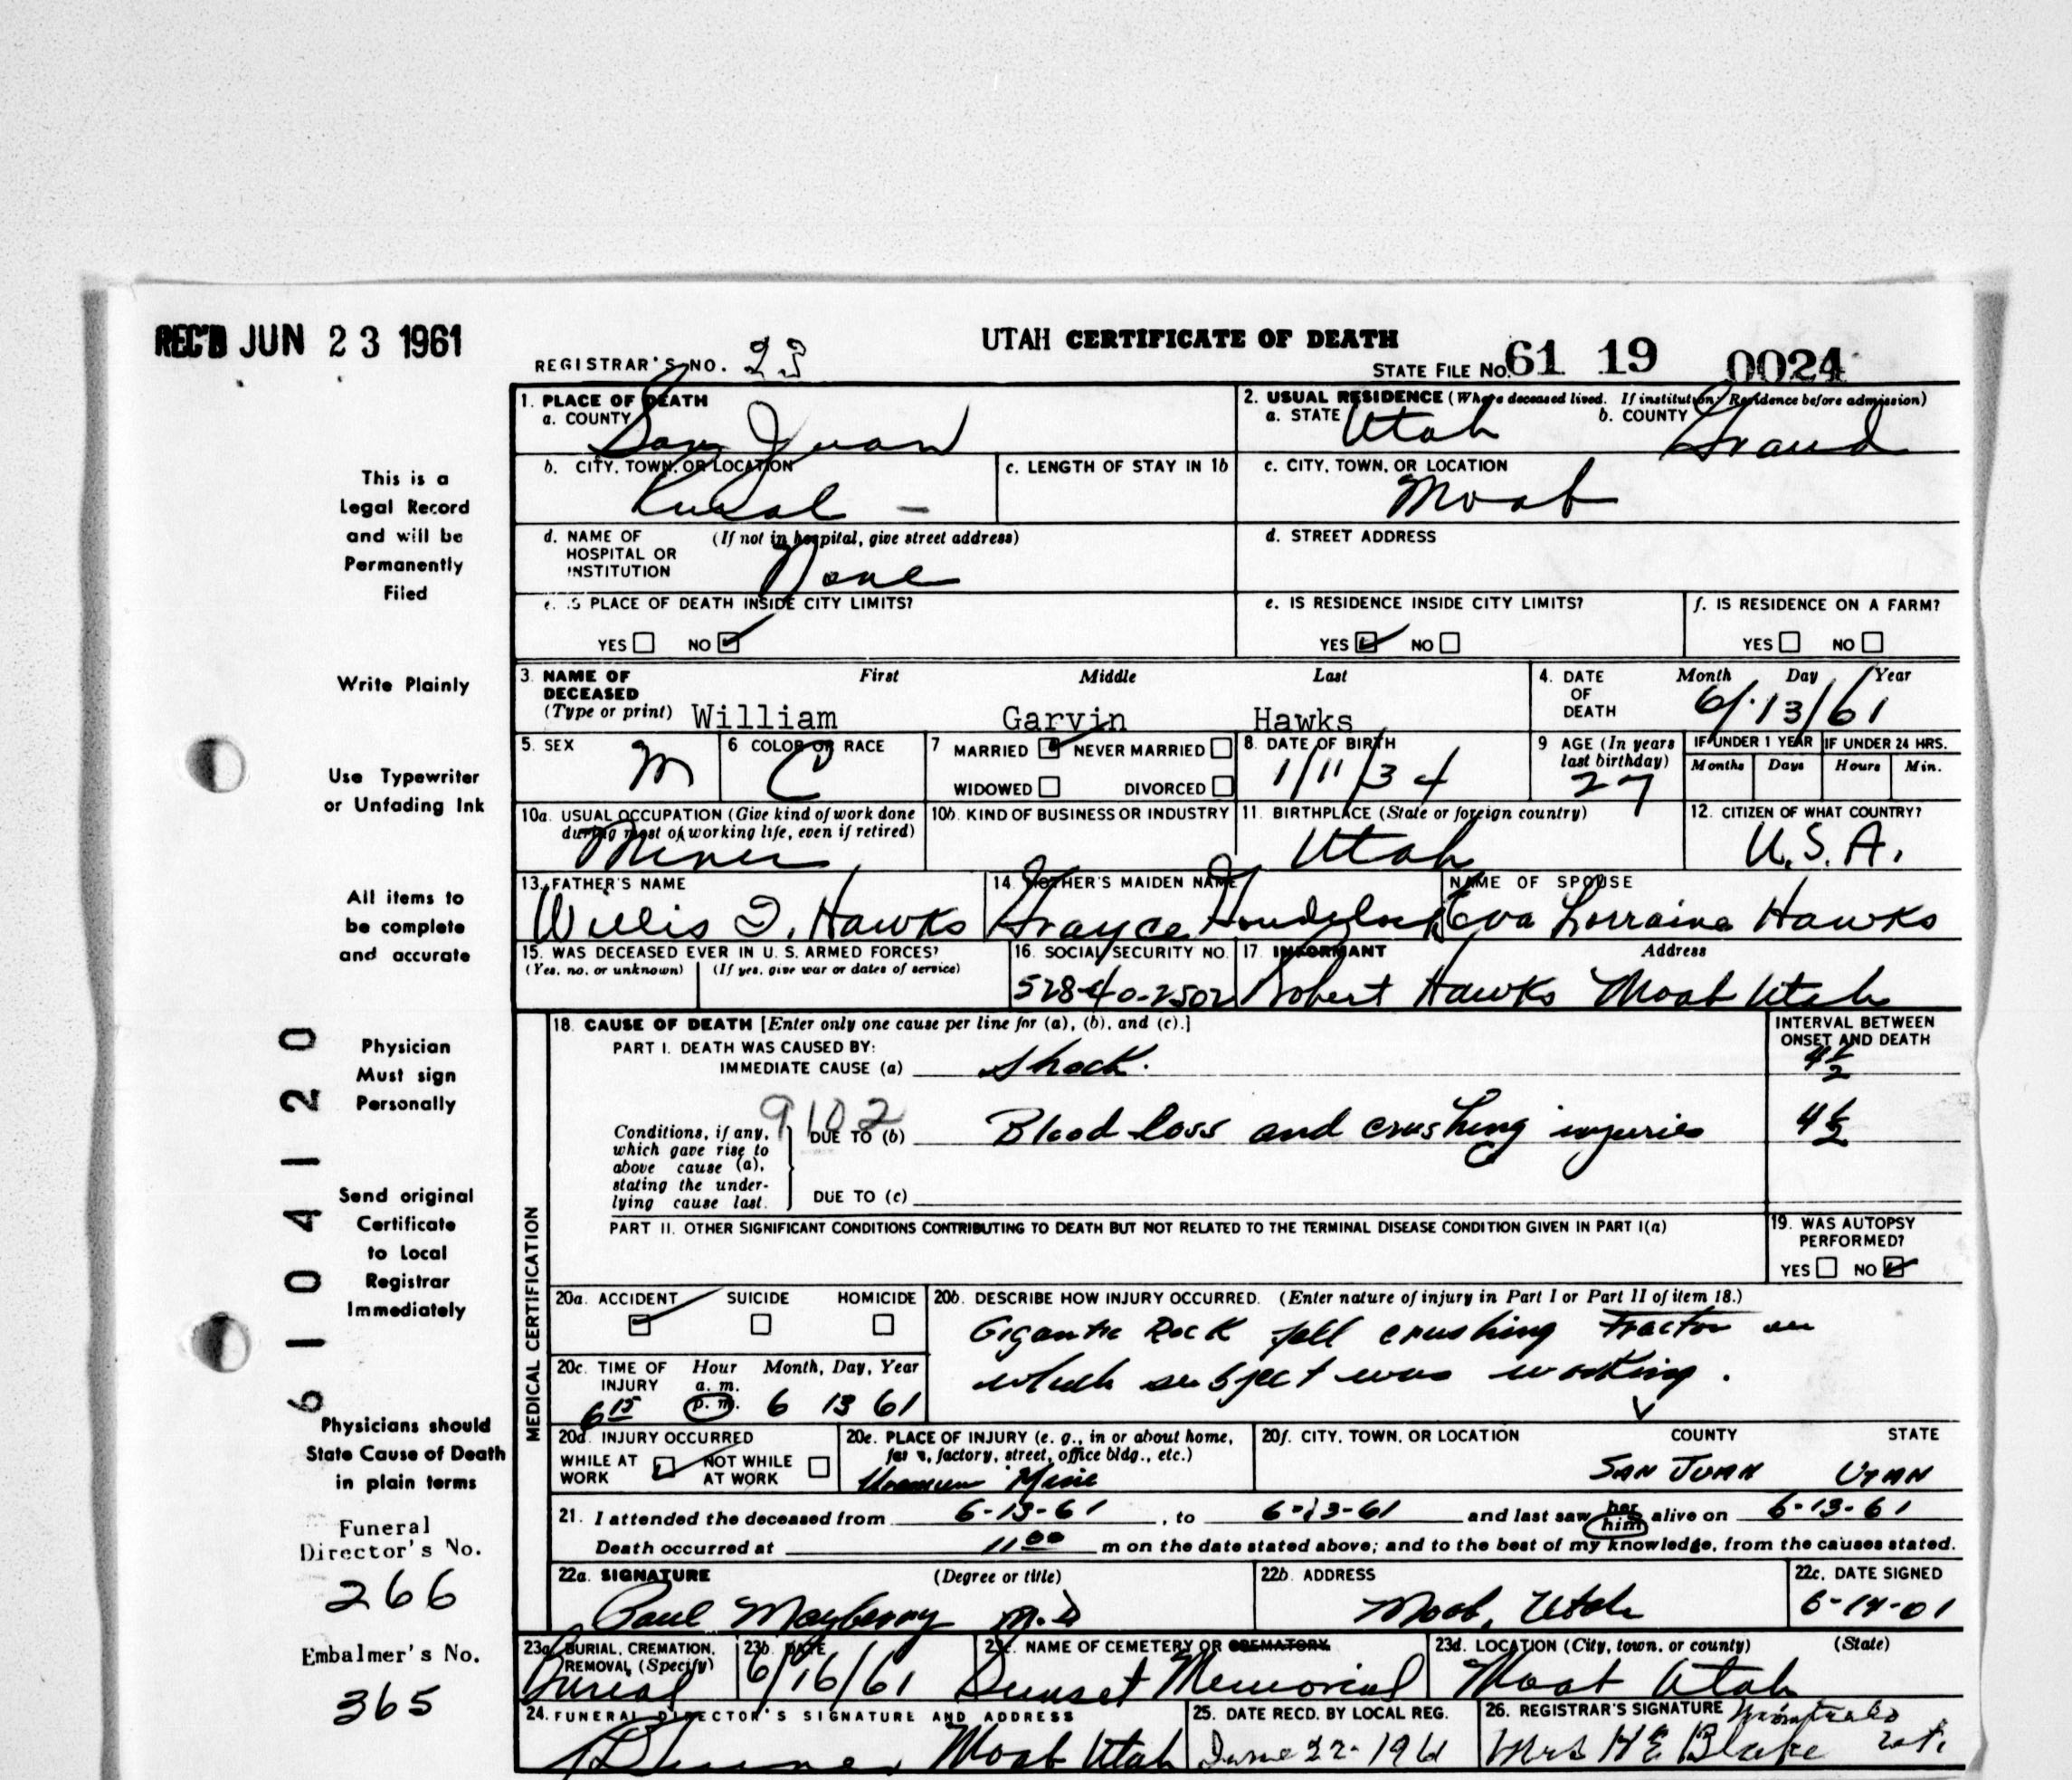 REC'D JUN 23 1961
UTAH CERTIFICATE OF DEATH
REGISTRAR'S NO. 23
STATE FILE NO. 61 19 0024
This is a
Legal Record
and will be
Permanently
Filed
Write Plainly
Use Typewriter
or Unfading Ink
All items to
be complete
and accurate
Physician
Must sign
Personally
Send original
Certificate
to Local
Registrar
Immediately
Physicians should
State Cause of Death
in plain terms
Funeral
Director's No.
266
Embalmer's No.
365
61 04120
1. PLACE OF DEATH
a. COUNTY San Juan
2. USUAL RESIDENCE (Where deceased lived. If institution: Residence before admission)
a. STATE Utah b. COUNTY Grand
b. CITY, TOWN, OR LOCATION Rural -
c. LENGTH OF STAY IN 1b
c. CITY, TOWN, OR LOCATION
Moab
d. NAME OF HOSPITAL OR INSTITUTION (If not in hospital, give street address)
None
d. STREET ADDRESS
e. IS PLACE OF DEATH INSIDE CITY LIMITS?
YES NO
e. IS RESIDENCE INSIDE CITY LIMITS?
YES NO
f. IS RESIDENCE ON A FARM?
YES NO
3. NAME OF DECEASED (Type or print)
First Middle Last
William Garvin Hawks
4. DATE OF DEATH Month Day Year
6/13/61
5. SEX M
6 COLOR OR RACE C
7 MARRIED NEVER MARRIED
WIDOWED DIVORCED
8. DATE OF BIRTH
1/11/34
9 AGE (In years last birthday)
27
IF UNDER 1 YEAR IF UNDER 24 HRS.
Months Days Hours Min.
10a. USUAL OCCUPATION (Give kind of work done during most of working life, even if retired)
Miner
10b. KIND OF BUSINESS OR INDUSTRY
11. BIRTHPLACE (State or foreign country)
Utah
12. CITIZEN OF WHAT COUNTRY?
U.S.A.
13. FATHER'S NAME
Willis I. Hawks
14. MOTHER'S MAIDEN NAME
Grayce
NAME OF SPOUSE
Eva Lorraine Hawks
15. WAS DECEASED EVER IN U. S. ARMED FORCES?
(Yes, no, or unknown) (If yes, give war or dates of service)
16. SOCIAL SECURITY NO.
528-40-2502
17. INFORMANT Address
Robert Hawks Moab Utah
MEDICAL CERTIFICATION
18. CAUSE OF DEATH [Enter only one cause per line for (a), (b), and (c).]
INTERVAL BETWEEN ONSET AND DEATH
PART I. DEATH WAS CAUSED BY:
IMMEDIATE CAUSE (a) Shock. 4½
9102
Conditions, if any, which gave rise to above cause (a), stating the underlying cause last.
DUE TO (b) Blood loss and crushing injuries 4½
DUE TO (c)
PART II. OTHER SIGNIFICANT CONDITIONS CONTRIBUTING TO DEATH BUT NOT RELATED TO THE TERMINAL DISEASE CONDITION GIVEN IN PART I(a)
19. WAS AUTOPSY PERFORMED?
YES NO
20a. ACCIDENT SUICIDE HOMICIDE
20b. DESCRIBE HOW INJURY OCCURRED. (Enter nature of injury in Part I or Part II of item 18.)
Gigantic Rock fell crushing Tractor on
which subject was working.
20c. TIME OF INJURY Hour Month, Day, Year
a. m.
6 15 p. m. 6 13 61
20d. INJURY OCCURRED
WHILE AT WORK NOT WHILE AT WORK
20e. PLACE OF INJURY (e. g., in or about home, farm, factory, street, office bldg., etc.)
Uranium Mine
20f. CITY, TOWN, OR LOCATION COUNTY STATE
SAN JUAN UTAH
21. I attended the deceased from 6-13-61, to 6-13-61 and last saw her him alive on 6-13-61
Death occurred at 11 00 m on the date stated above; and to the best of my knowledge, from the causes stated.
22a. SIGNATURE (Degree or title)
Paul Mayberry M.D
22b. ADDRESS
Moab, Utah
22c. DATE SIGNED
6-14-61
23a. BURIAL, CREMATION, REMOVAL (Specify)
Burial
23b. DATE
6/16/61
23c. NAME OF CEMETERY OR CREMATORY
Sunset Memorial
23d. LOCATION (City, town, or county) (State)
Moab Utah
24. FUNERAL DIRECTOR'S SIGNATURE AND ADDRESS
Moab Utah
25. DATE RECD. BY LOCAL REG.
June 22-1961
26. REGISTRAR'S SIGNATURE
Mrs H E Blake